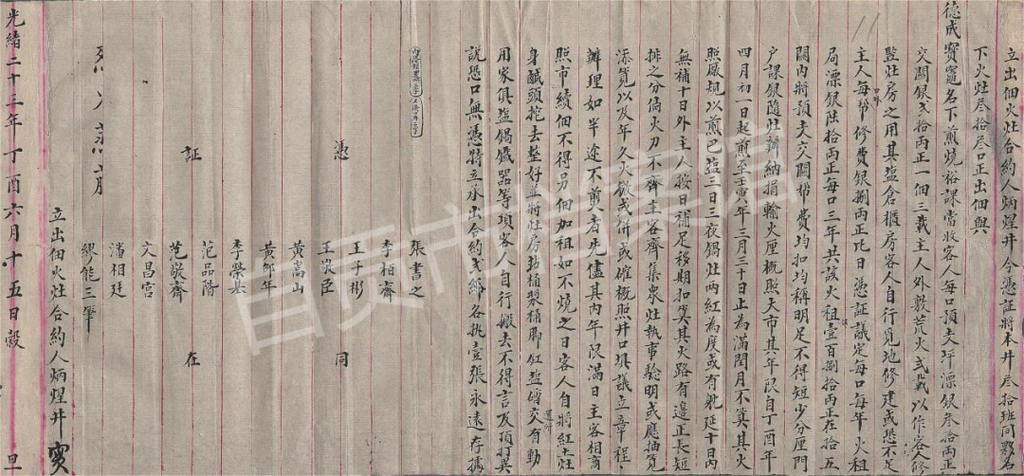 立出佃火灶合約人炳煋井今憑証將本井叁拾班同夥名
下火灶叁拾叁口正出佃與
德成寶竈名下煎燒裕課當收客人每口預支坪漂銀叁拾兩正
交關銀弍拾兩正一個三載主人外敷荒火弍載以作客人修
監灶房之用其盐倉櫃房客人自行覓地修建或恐不足
主人每口幇修費銀捌兩正比日憑証議定每口每年火租
局漂銀陸拾兩正每口三年共該火租壹百捌拾兩正在拾五
關內將預支交關幇費均扣均稱明足不得短少分厘門
户課銀隨灶辦納捐輸火厘概照大市其年限自丁酉年
四月初一日起煎至壬寅年三月三十日止為滿閏月不算其火
照厰規以煎巴盐三日三夜鍋灶兩紅為度或有躭延十日內
無補十日外主人按日補足移期扣算其火路有邊正長短
排之分倘火刀不齊主客齊集衆灶執事驗明或應抽筧
添筧以及年久火微或併或催概照井口填議立章程
辦理如半途不煎者先儘其內年限滿日主客相商
照市續佃不得另佃加租如不燒之日客人自將紅土灶
身鹹頭挖去整好並將灶房站桶槳桶脚紅盐硝交有勳
用家俱盐鍋鐵器等項客人自行搬去不得言及頂打異
說恐口無憑特立永出合約弍紙各执壹張永遠存據
憑 同
証 在
張書之
李相齋
王子彬
王敬臣
黃嵩山
黃郁年
李榮基
范品階
范敬齋
文昌宮
潘相廷
繆能三筆
立出佃火灶合約人炳煋井
光緒二十三年丁酉六月十五日穀旦
自贡市档案馆